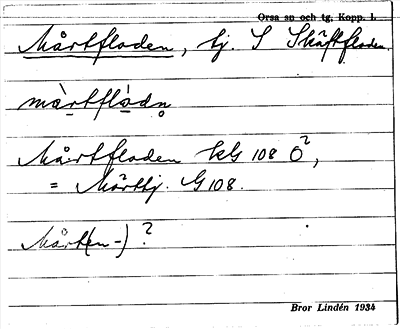 Orsa sn och tg, Kopp. l.
Mårtfloden, tj. S Skäftfloden.
màrtflådn̥
Mårtfloden kG 108 Ö²,
= Mårttj. G 108.
Mårt(en-)?
Bror Lindén 1934